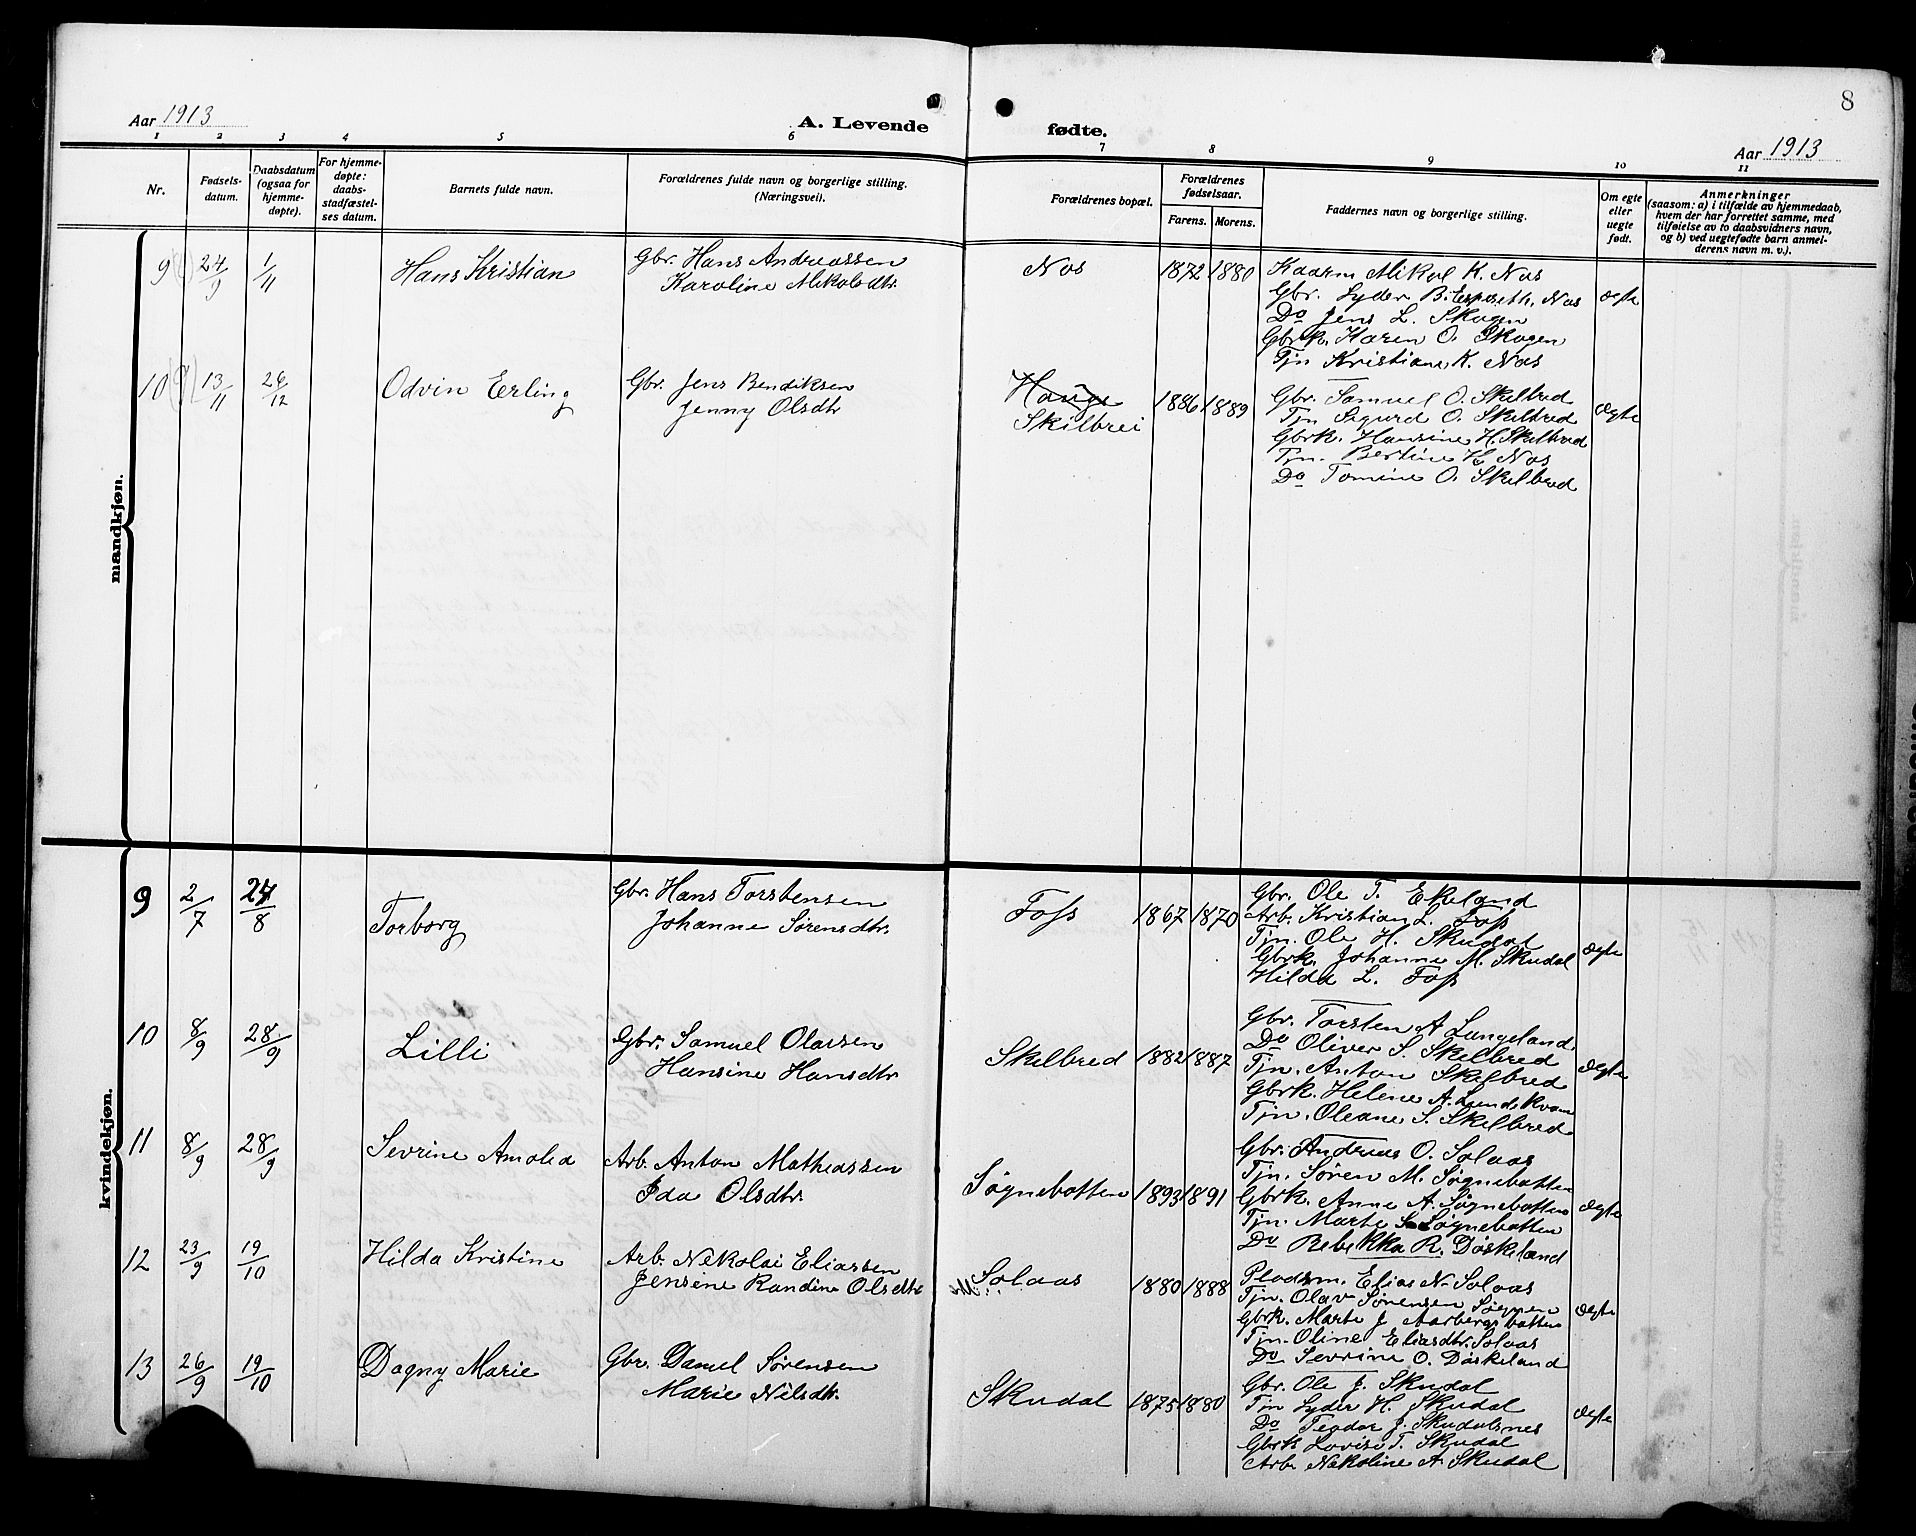 8
Aar 1913
A. Levende fødte.
Aar 1913
1 2 3 4 5 6 7 8 9 10 11
Nr.
Fødsels-
datum.
Daabsdatum
(ogsaa for
hjemme-
døpte).
For hjemme-
døpte:
daabs-
stadfæstel-
ses datum.
Barnets fulde navn.
Forældrenes fulde navn og borgerlige stilling.
(Næringsvei).
Forældrenes bopæl.
Forældrenes
fødselsaar.
Farens. Morens.
Faddernes navn og borgerlige stilling.
Om egte
eller
uegte
født.
Anmerkninger
(saasom: a) i tilfælde av hjemmedaab,
hvem der har forrettet samme, med
tilføielse av to daabsvidners navn,
og b) ved uegtefødte barn anmel-
derens navn m. v.).
mandkjøn.
9 24/9 1/11 Hans Kristian
Gbr. Hans Andreassen
Karoline Mikalsdtr.
Nos 1872 1880
Kaarm Mikal K. Nos
Gbr. Lyder B. Espeseth. Nos
Do Jens L. Skogen
Gbrk. Karen O. Skogen
Tjn Kristiane K. Nos
ægte
10 13/11 26/12 Odvin Erling
Gbr. Jens Bendiksen
Jenny Olsdtr
Hauge
Skilbrei
1886 1889
Gbr. Samuel O. Skelbred
Tjn Sigurd O. Skelbred
Gbrk. Hansine H. Skelbred
Tjn. Bertine H. Nos
Do Tomine O. Skelbred
ægte
kvindekjøn.
9 2/7 24/8 Torborg
Gbr. Hans Torstensen
Johanne Sørensdtr.
Foss 1867 1870
Gbr. Ole T. Ekeland
Arb. Kristian L. Foss
Tjn. Ole H. Skudal
Gbrk. Johanne M. Skudal
Hilda L. Foss
ægte
10 8/9 28/9 Lilli
Gbr. Samuel Olassen
Hansine Hansdtr
Skelbred 1882 1887
Gbr. Torsten A Langeland.
Do Oliver S. Skelbred
Tjn. Anton Skelbred
Gbrk. Helene A. Lundekvam
Tjn. Oleane S. Skelbred
ægte
11 8/9 28/9 Sevrine Amalia
Arb. Anton Mathiassen
Ida Olsdtr.
Søgnebotten 1893 1891
Gbr. Andreas O. Solaas
Tjn. Søren M. Søgnebotten
Gbrk. Anne A. Søgnebotten
Tjn. Marte S. Søgnebotten
Do Rebekka R. Døskeland
ægte
12 23/9 19/10 Hilda Kristine
Arb. Nikolai Eliassen
Jensine Randine Olsdtr
Solaas 1880 1888
Pladsm. Elias N. Solaas
Tjn. Olav Sørensen Søgnen
Gbrk. Marte J. Aarbergsbotten
Tjn. Oline Eliasdtr. Solaas
Do Sevrine O. Døskeland
ægte
13 26/9 19/10 Dagny Marie
Gbr. Daniel Sørensen
Marie Nilsdtr.
Skudal 1875 1880
Gbr. Ole J. Skudal
Tjn Lyder H. Skudal
Do Teodor J. Skudalsnes
Gbrk Lovise T. Skudal
Arb. Nikoline A. Skudal
ægte